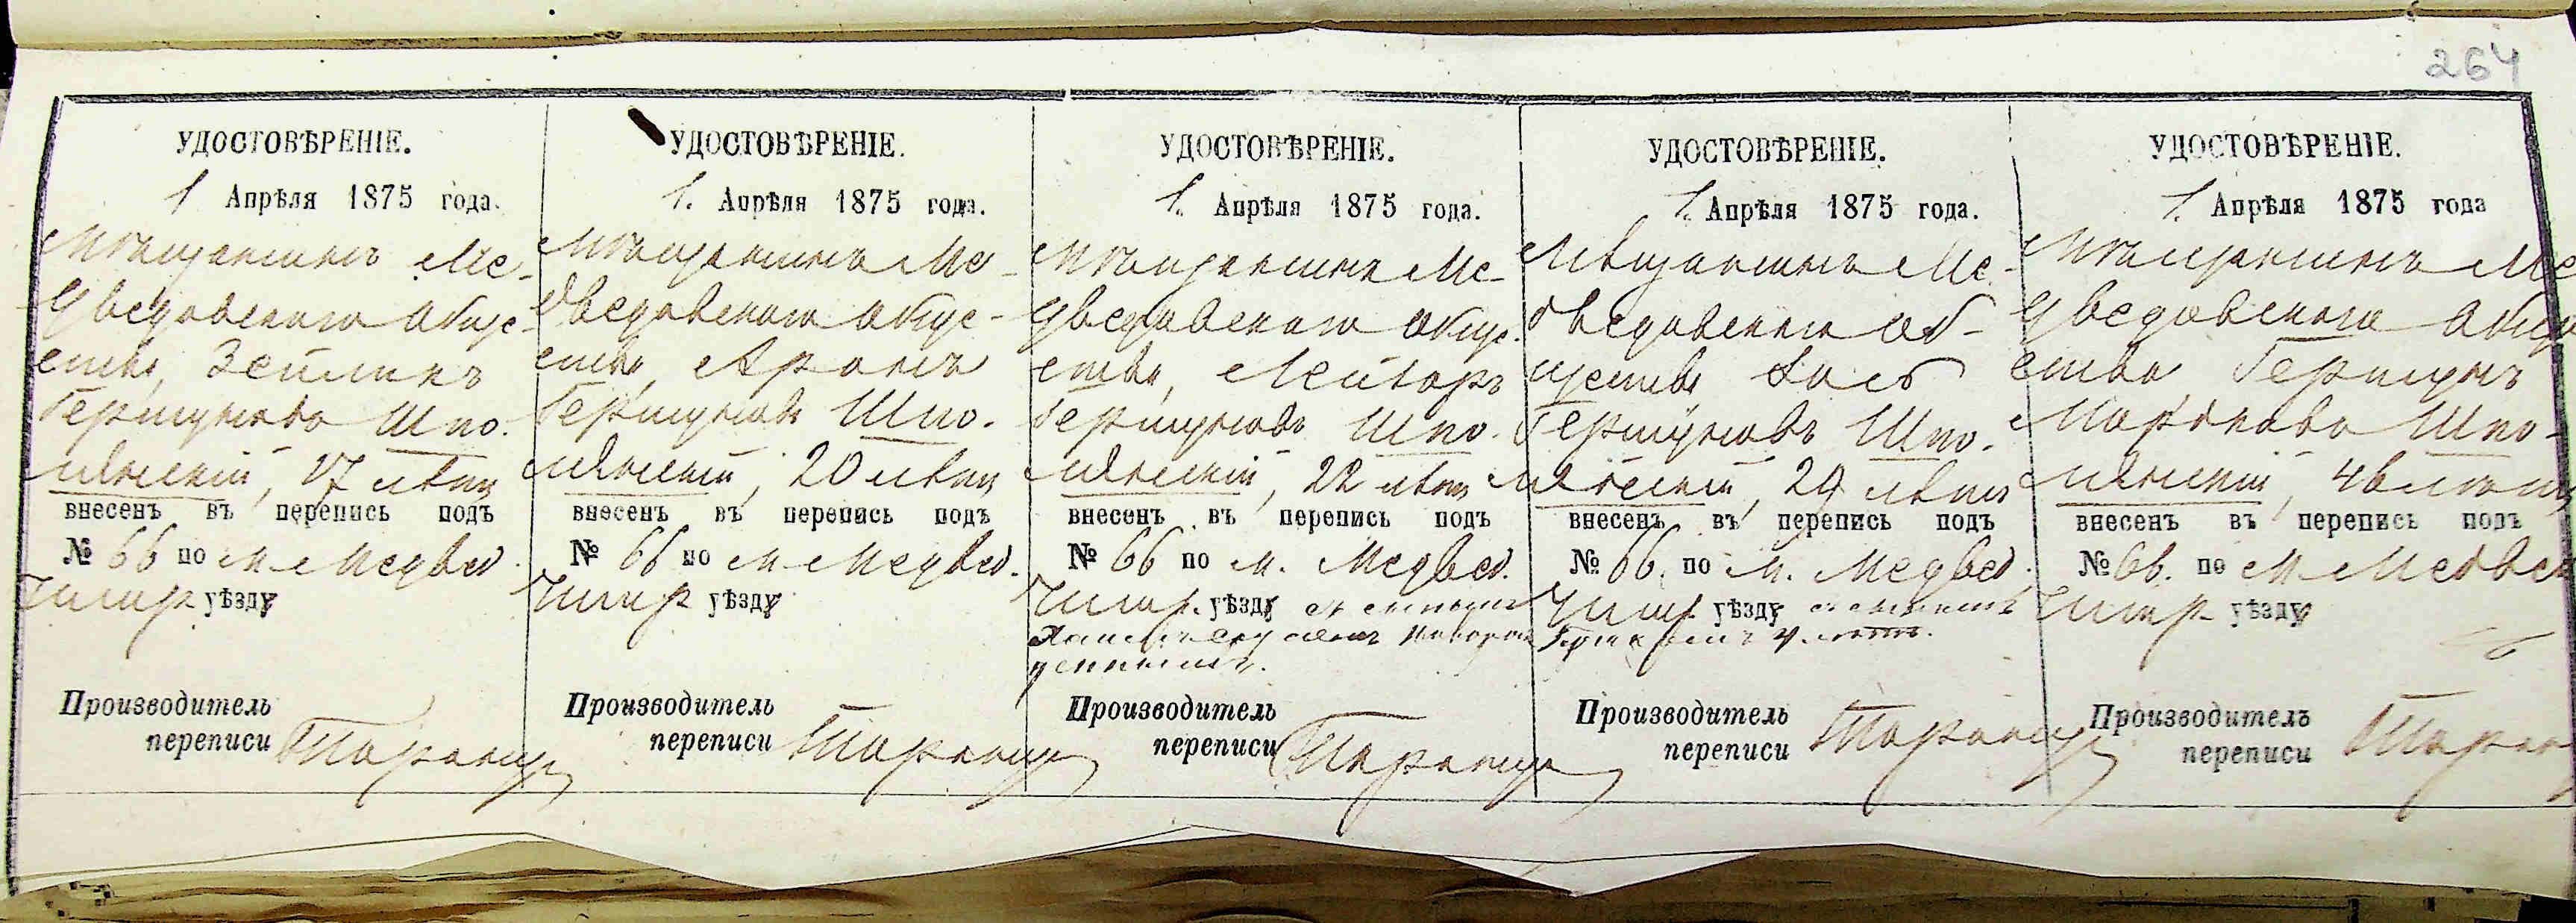 264
УДОСТОВѢРЕНІЕ.
1 Апрѣля 1875 года.
Мѣщанинъ Ме-
дведовскаго обще-
ства, Зейликъ
Гершуновъ Шпо-
лянскій, 17 лѣтъ
внесенъ въ перепись подъ
№ 66 по м. Медвед.
Чигир уѣзду
Производитель
переписи
УДОСТОВѢРЕНІЕ.
1. Апрѣля 1875 года.
Мѣщанинъ Ме-
дведовскаго обще-
ства, Аронъ
Гершуновъ Шпо-
лянскій, 20 лѣтъ
внесенъ въ перепись подъ
№ 66 по м. Медвед.
Чигир уѣзду
Производитель
переписи
УДОСТОВѢРЕНІЕ.
1. Апрѣля 1875 года.
Мѣщанинъ Ме-
дведовскаго обще-
ства, Лейзоръ
Гершуновъ Шпо-
лянскій, 22 лѣтъ
внесенъ въ перепись подъ
№ 66 по м. Медвед.
Чигир. уѣзду съ сыномъ
новорож
деннымъ.
Производитель
переписи
УДОСТОВѢРЕНІЕ.
1. Апрѣля 1875 года.
Мѣщанинъ Ме-
дведовскаго об-
щества,
Гершуновъ Шпо-
лянскій, 29 лѣтъ
внесенъ въ перепись подъ
№ 66. по м. Медвед.
Чигир уѣзду съ сыномъ
лѣтъ.
Производитель
переписи
УДОСТОВѢРЕНІЕ.
1. Апрѣля 1875 года
Мѣщанинъ Ме
дведовскаго обще
ства Гершунъ
Шпо-
лянскій, 46 лѣтъ
внесенъ въ перепись подъ
№ 66. по м. Медвед
Чигир уѣзду
Производитель
переписи